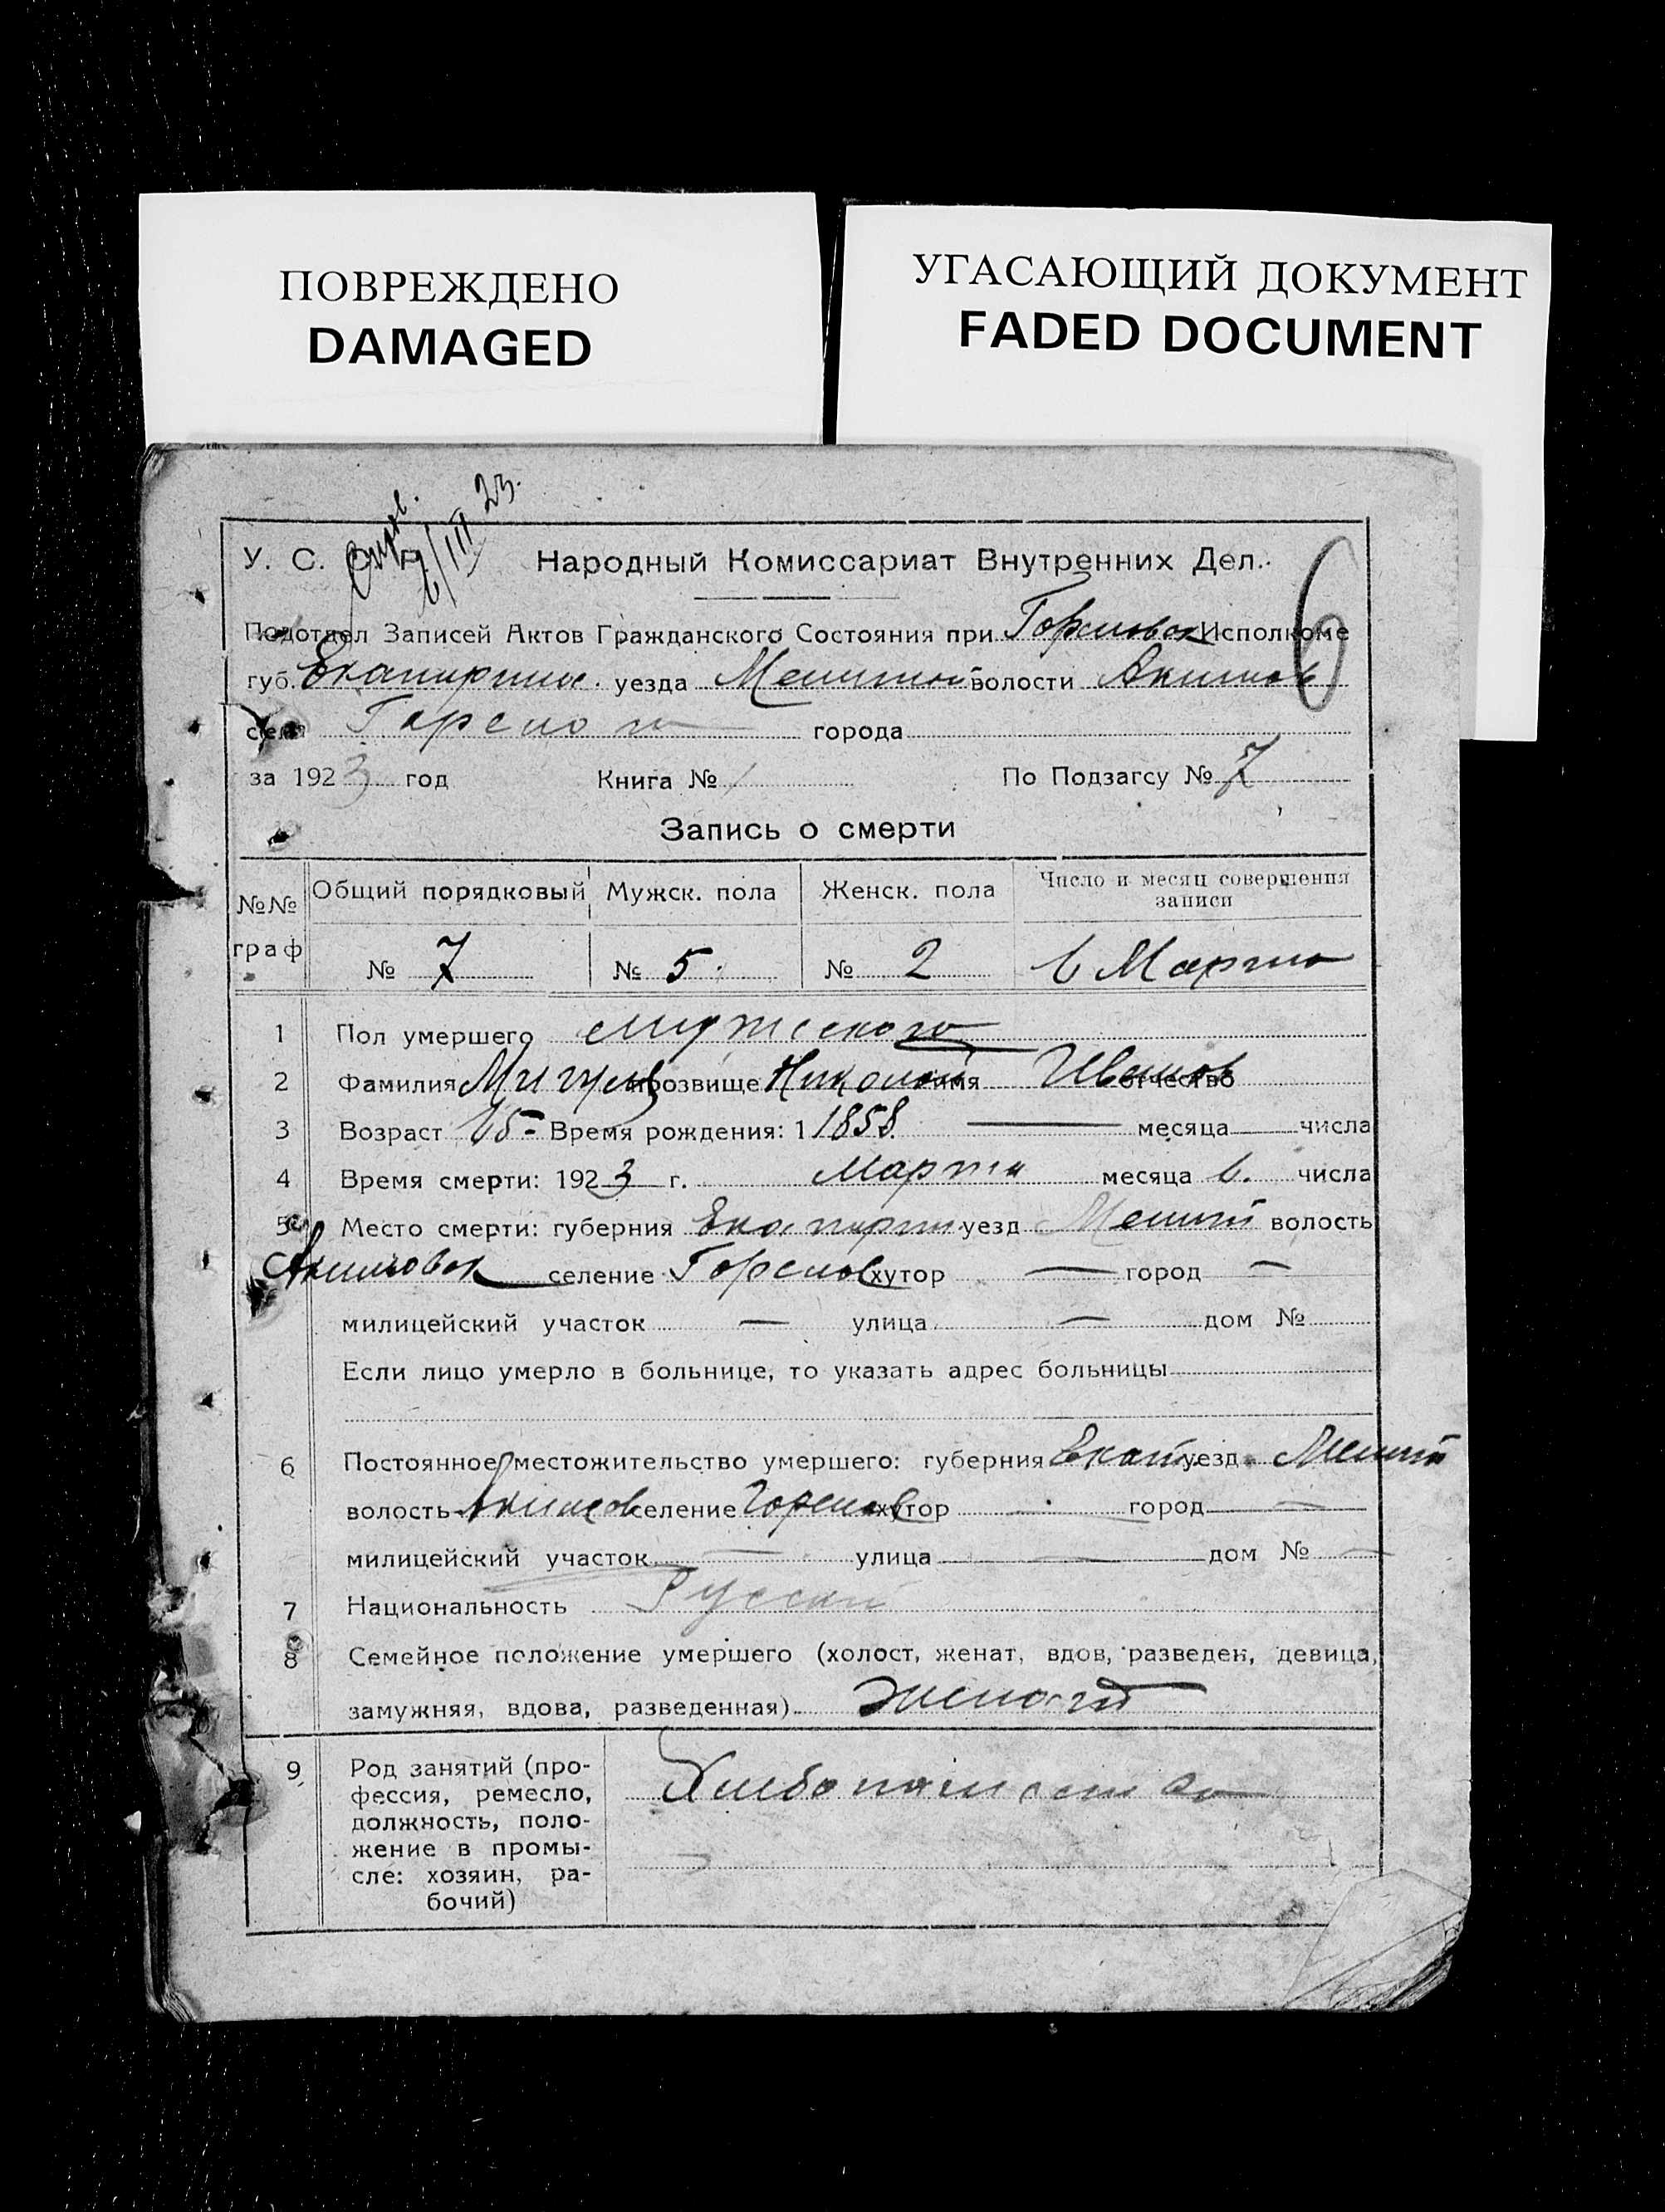 ПОВРЕЖДЕНО
DAMAGED
УГАСАЮЩИЙ ДОКУМЕНТ
FADED DOCUMENT
6/III 23.
У. С. С. Р. Народный Комиссариат Внутренних Дел.
6
Подотдел Записей Актов Гражданского Состояния при Исполкоме
губ. уезда волости Акимов
села города
за 1923 год Книга № 1 По Подзагсу № 7
Запись о смерти
№№ граф Общий порядковый Мужск. пола Женск. пола Число и месяц совершения записи
№ 7 № 5. № 2 6 Марта
1 Пол умершего мужского
2 Фамилия прозвище Николай имя Иванов отчество
3 Возраст 65 Время рождения: 1 1858 — месяца — числа
4 Время смерти: 1923 г. Марта месяца 6. числа
5 Место смерти: губерния уезд волость
Акимовск селение хутор — город —
милицейский участок — улица — дом №
Если лицо умерло в больнице, то указать адрес больницы
6 Постоянное местожительство умершего: губерния Екат. уезд
волость Акимов селение хутор — город —
милицейский участок — улица — дом № —
7 Национальность Русский
8 Семейное положение умершего (холост, женат, вдов, разведен, девица,
замужняя, вдова, разведенная) женат
9 Род занятий (про-
фессия, ремесло,
должность, поло-
жение в промы-
сле: хозяин, ра-
бочий)
Хлебопашество